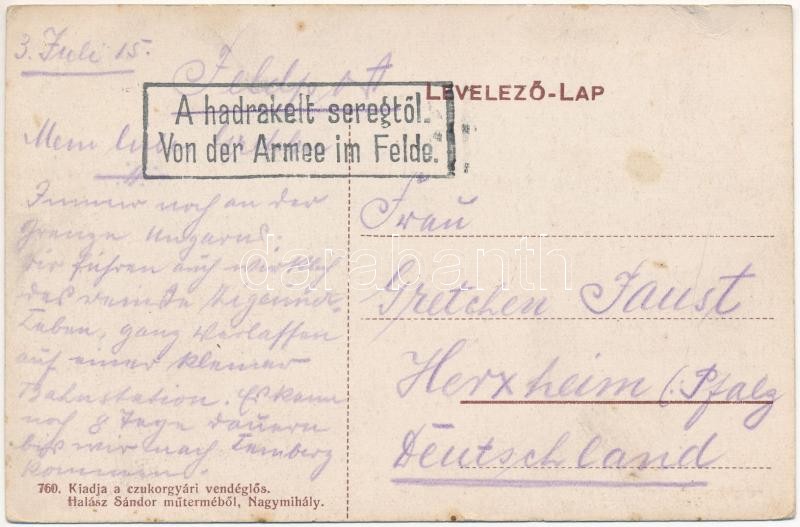 3. Juli 15.
Feldpost
LEVELEZŐ-LAP
A hadrakelt seregtől.
Von der Armee im Felde.
Mein
Immer noch an der
Grenze Ungarns.
Wir führen auch wirklich
das reinste Zigeuner-
Leben, ganz verlassen
auf einer kleinen
Bahnstation. Es kann
noch 8 Tage dauern
bis wir nach Lemberg
kommen.
Frau
Gretchen Faust
Herxheim (Pfalz
Deutschland
darabanth
760. Kiadja a czukorgyári vendéglős.
Halász Sándor műterméből, Nagymihály.